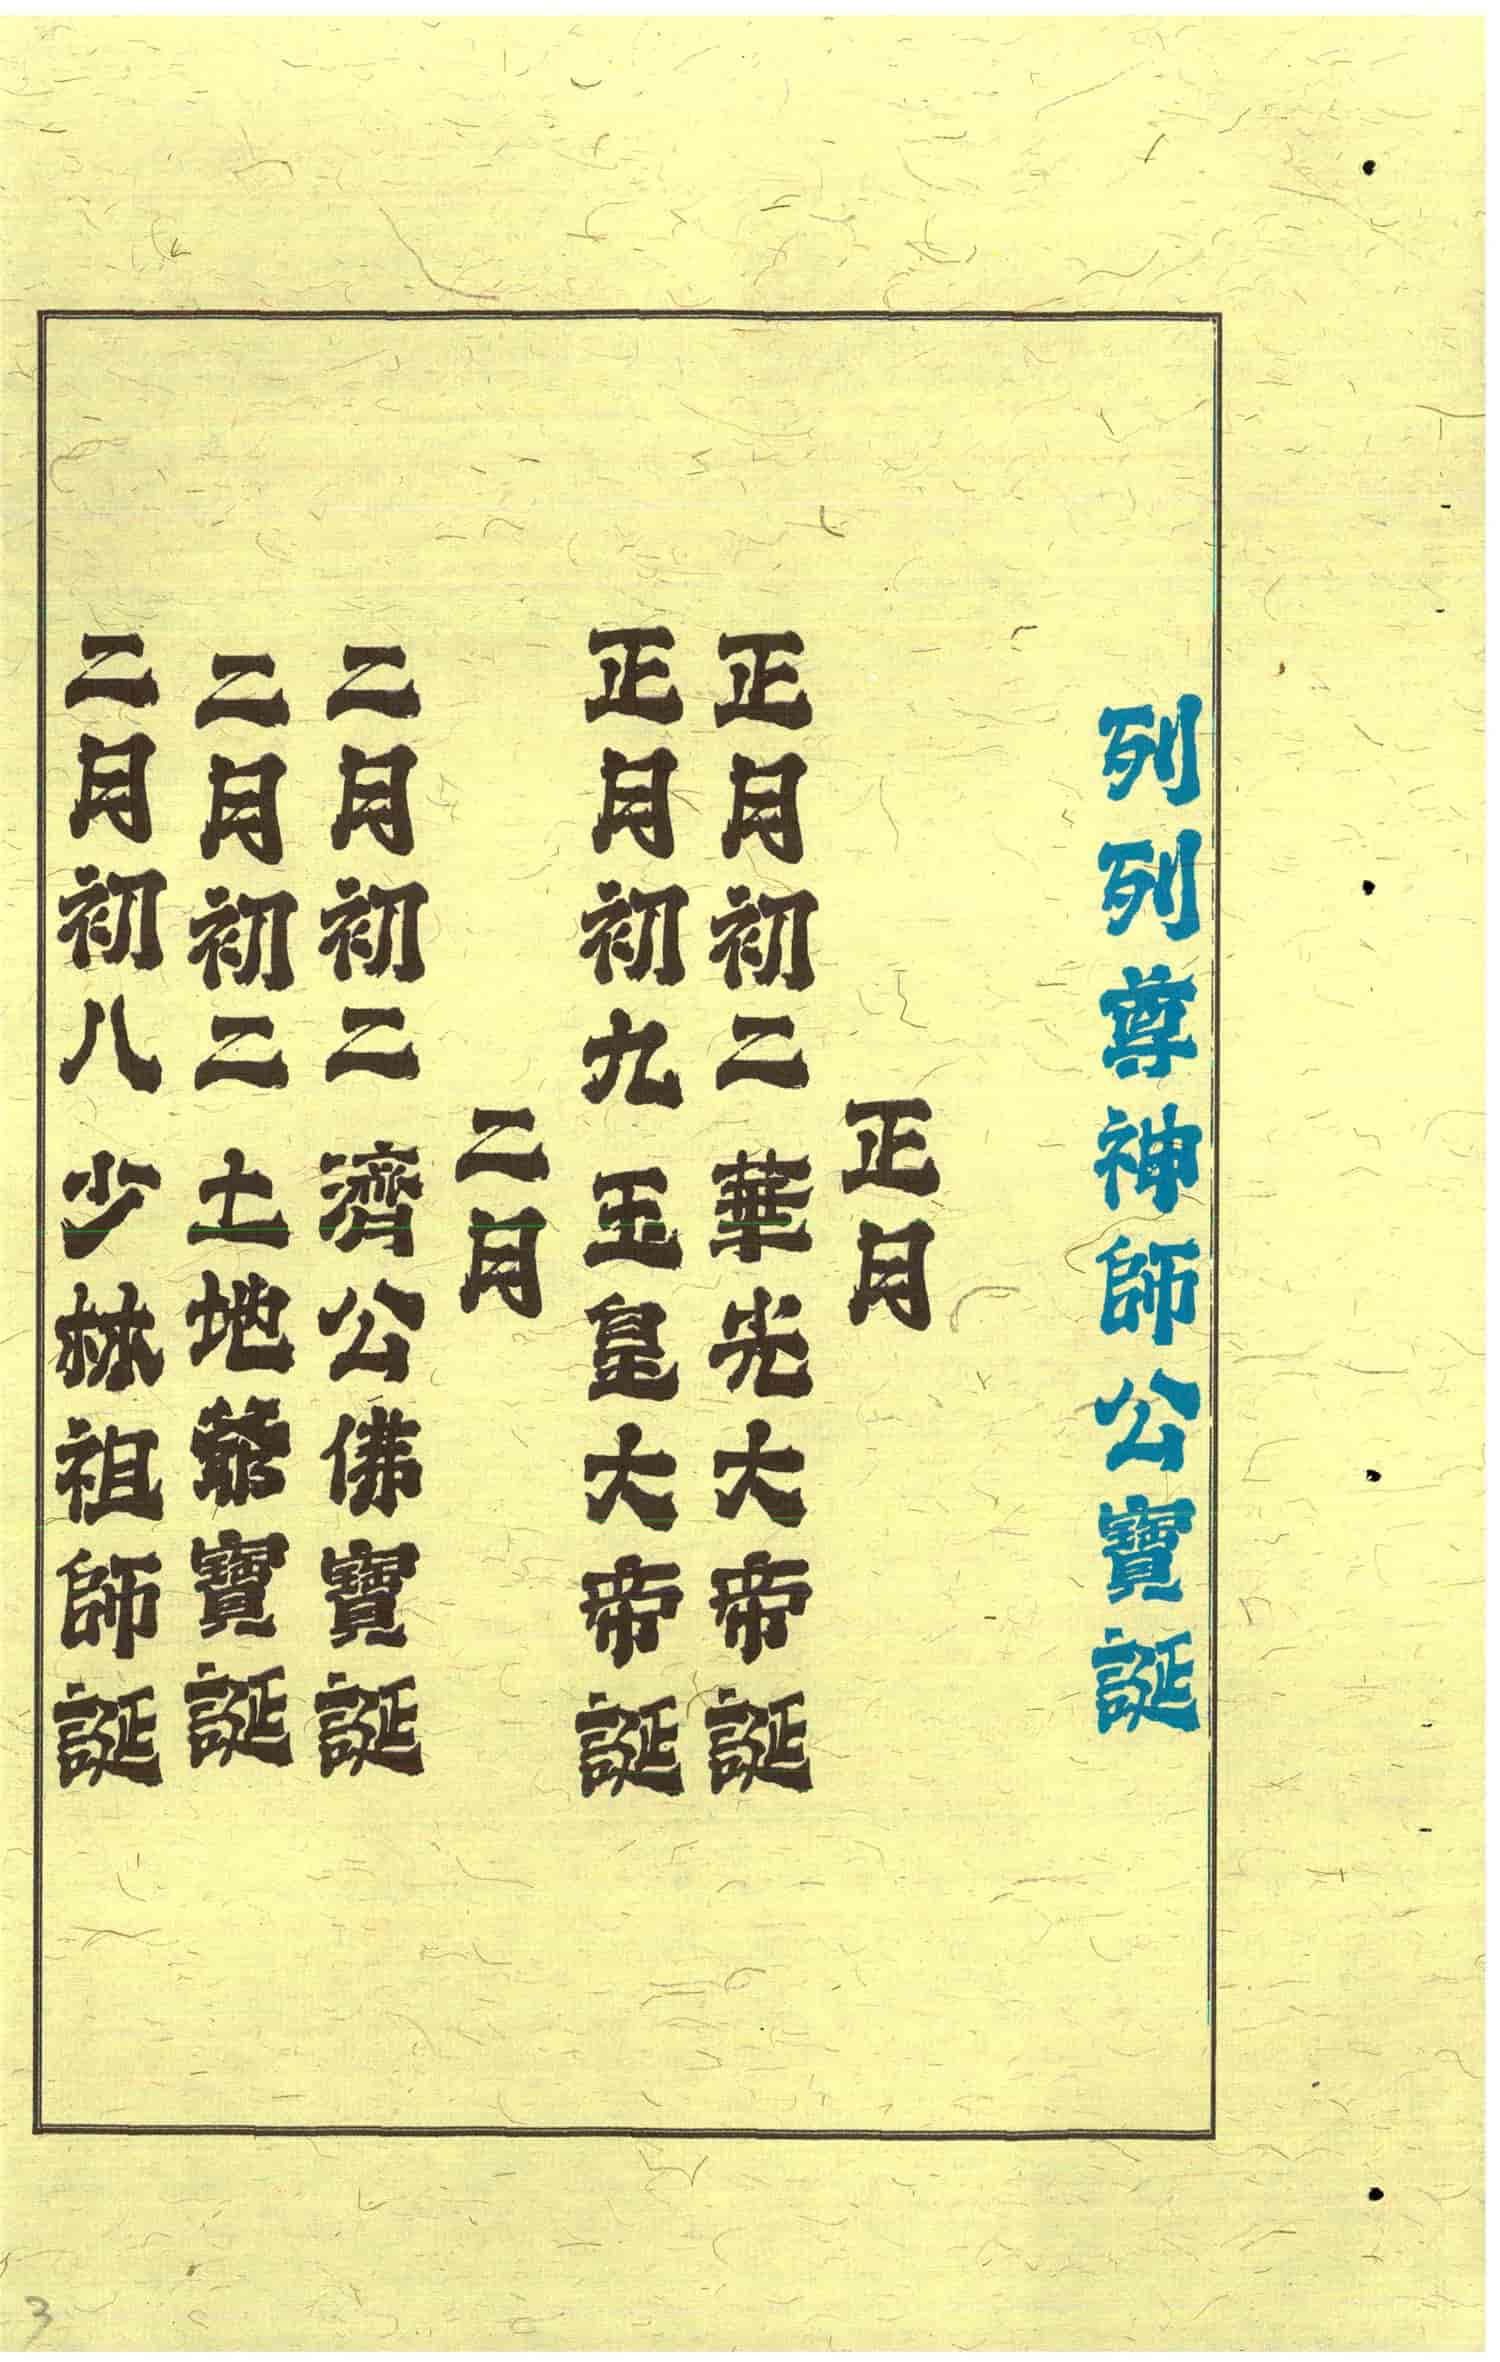 列列尊神師公寶誕
正月
正月初二 華光大帝誕
正月初九 玉皇大帝誕
二月
二月初二 濟公佛寶誕
二月初二 土地爺寶誕
二月初八 少林祖師誕
3